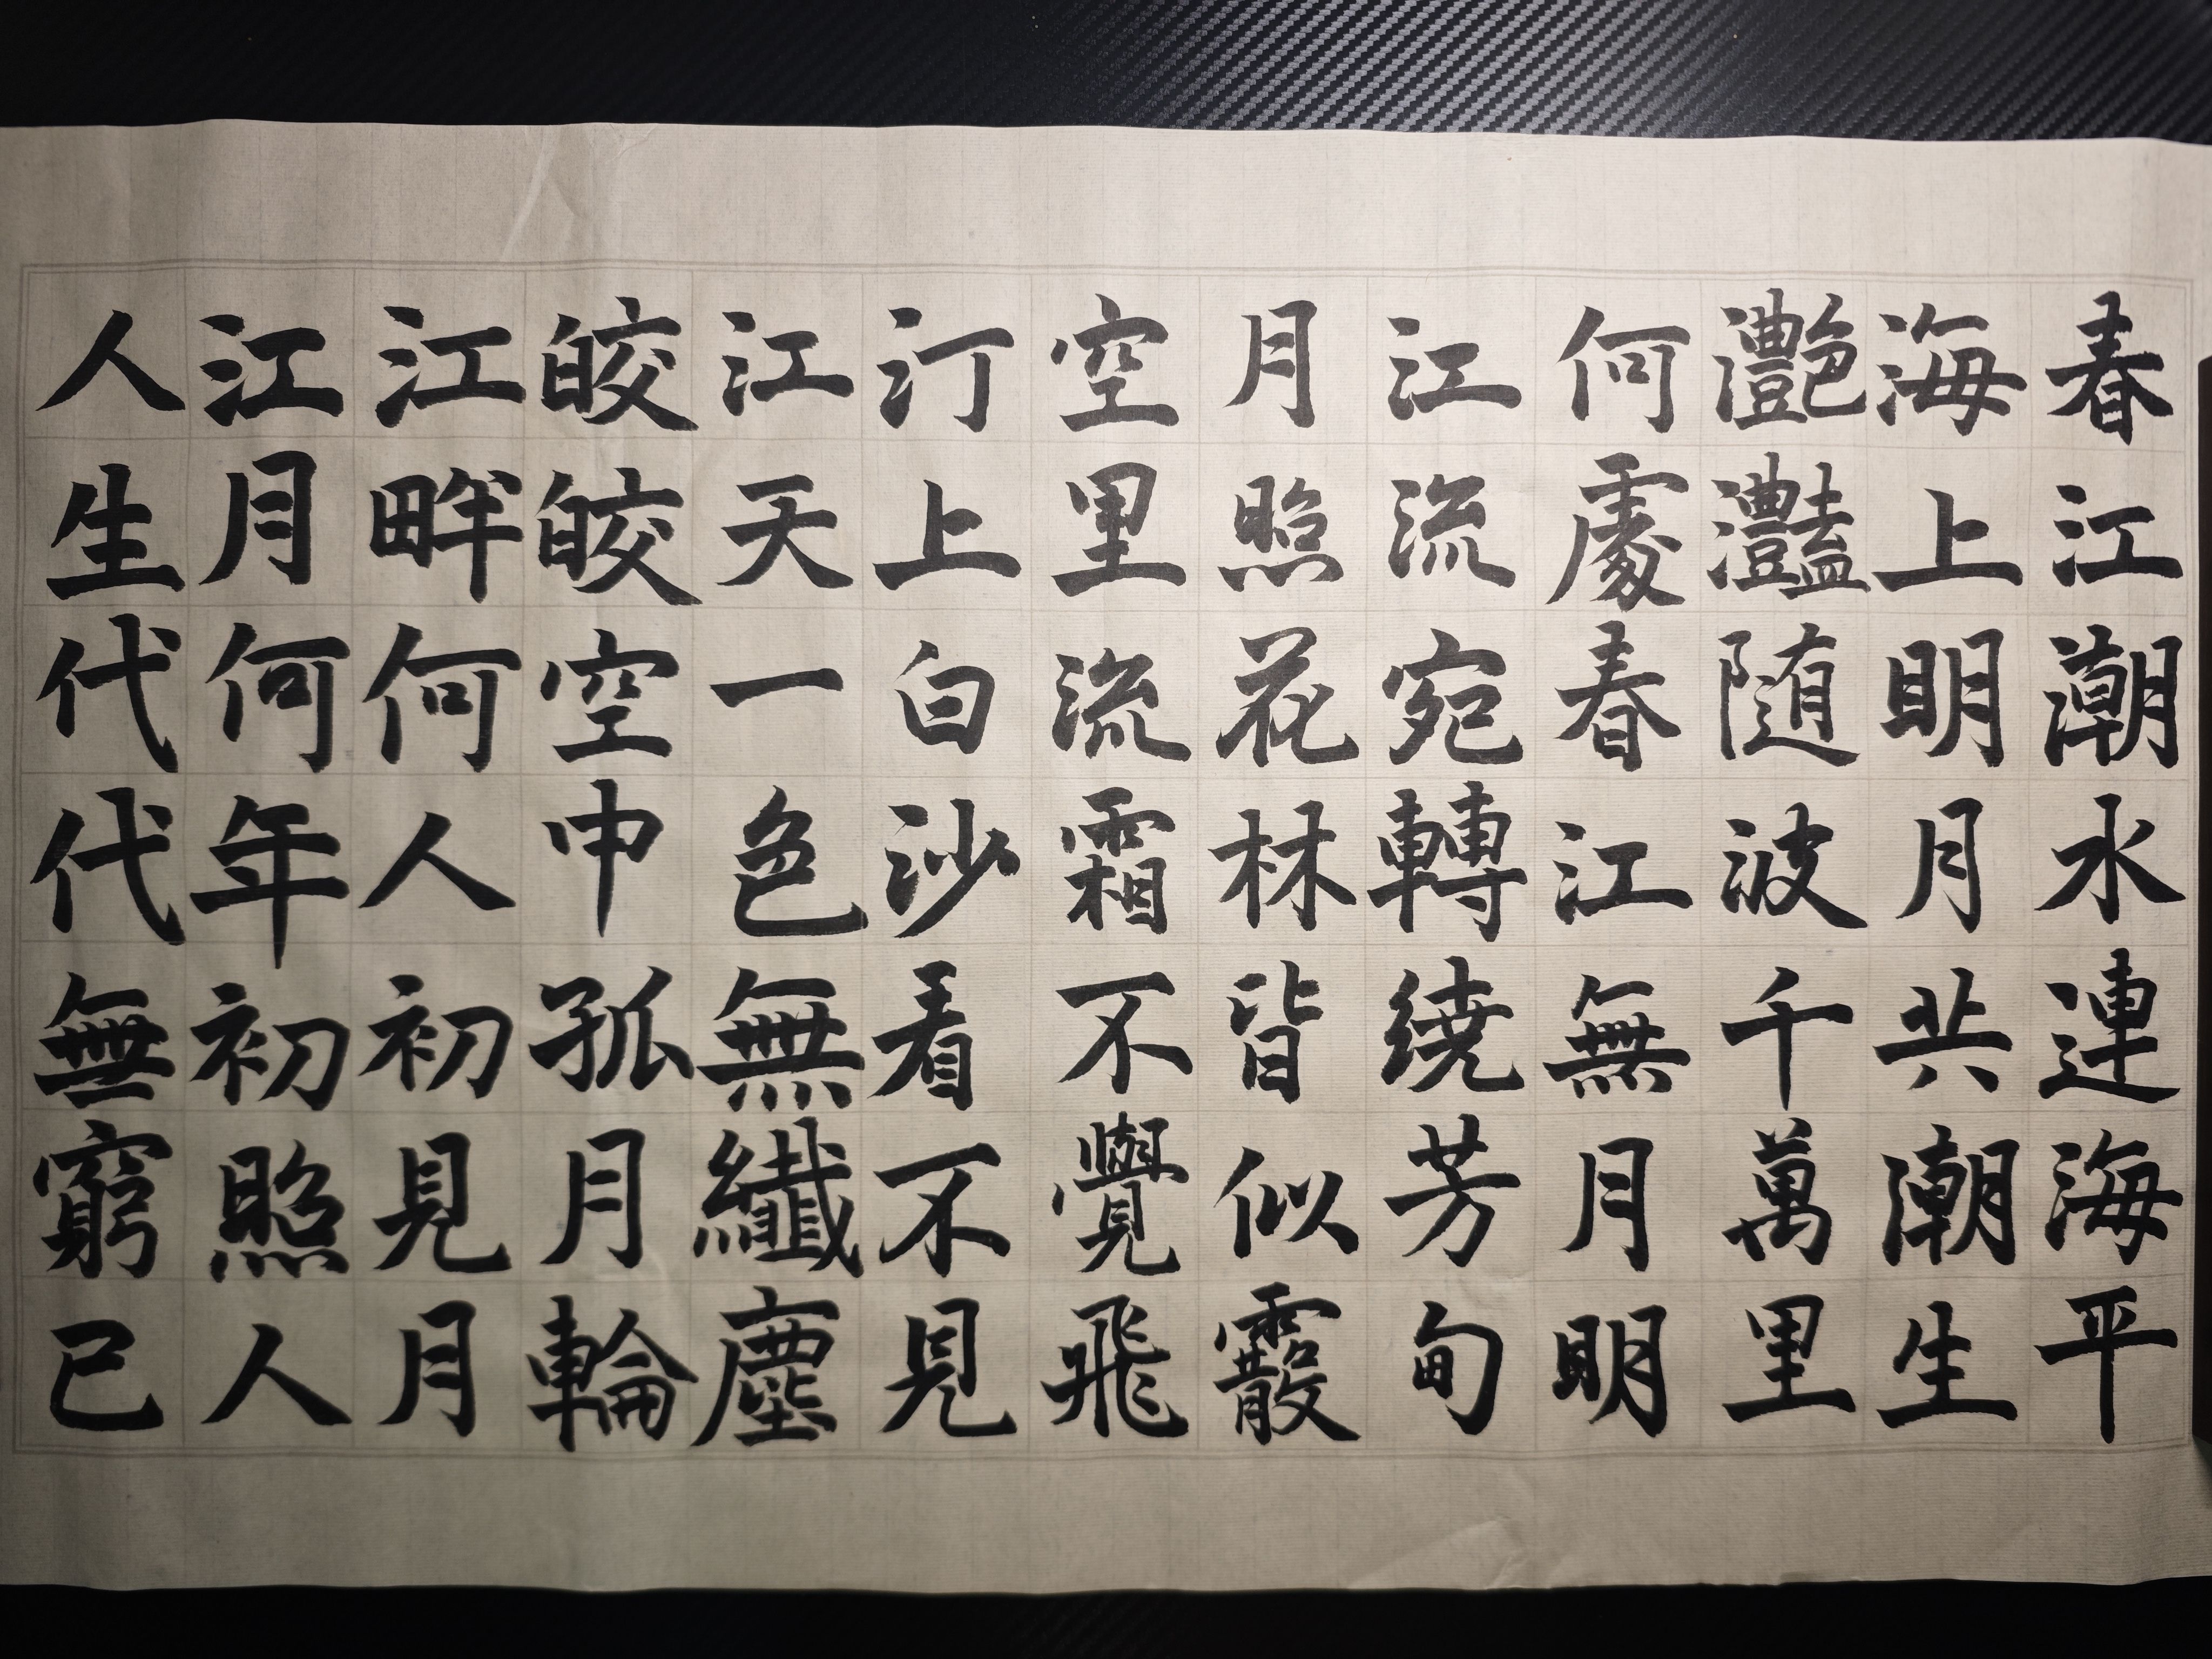 春江潮水連海平
海上明月共潮生
灔灩随波千萬里
何處春江無月明
江流宛轉繞芳甸
月照花林皆似霰
空里流霜不覺飛
汀上白沙看不見
江天一色無纖塵
皎皎空中孤月輪
江畔何人初見月
江月何年初照人
人生代代無窮已